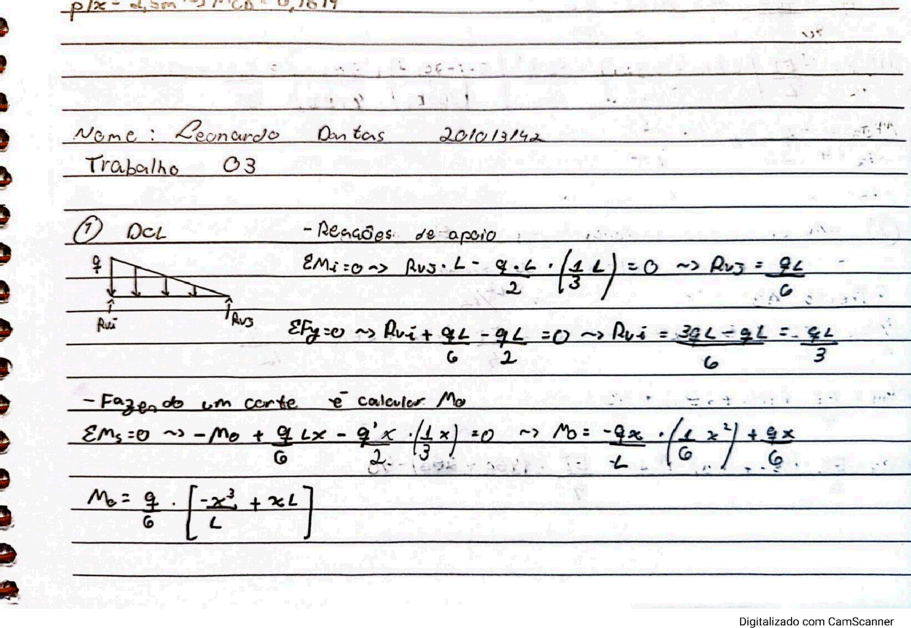 p/x = 2,5m
Nome: Leonardo Dantas 201013142
Trabalho 03
① DCL - Reações de apoio
q Rvi Rv3
ΣMi=0 ~> Rv3 · L - q·L/2 · (1/3 L) = 0 ~> Rv3 = qL/6
ΣFy=0 ~> Rvi + qL/6 - qL/2 = 0 ~> Rvi = 3qL - qL/6 = qL/3
- Fazendo um corte e calcular M₀
ΣMs=0 ~> -M₀ + q/6 Lx - q'x/2 · (1/3 x) = 0 ~> M₀ = -qx/L · (1/6 x²) + qx/6
M₀ = q/6 · [-x³/L + xL]
Digitalizado com CamScanner